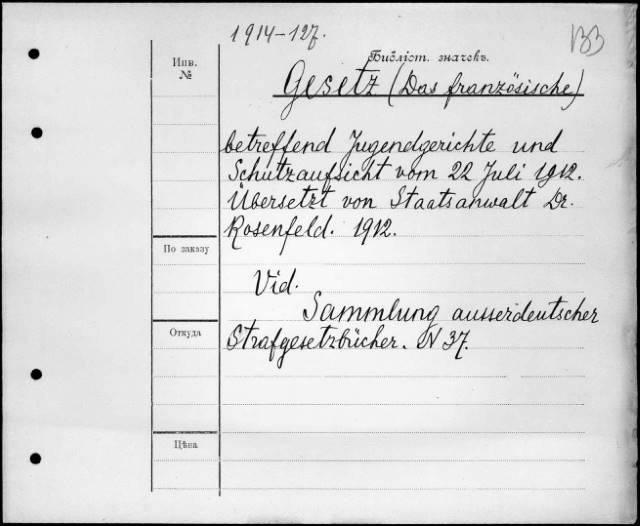 1914-127.
ВЗ
Инв.
№
Библіот. значекъ.
Gesetz (Das französische)
betreffend Jugendgerichte und
Schutzaufsicht vom 22 Juli 1912.
Übersetzt von Staatsanwalt Dr.
Rosenfeld. 1912.
По заказу
Vid.
Sammlung ausserdeutscher
Откуда
Strafgesetzbücher. N 37.
Цѣна